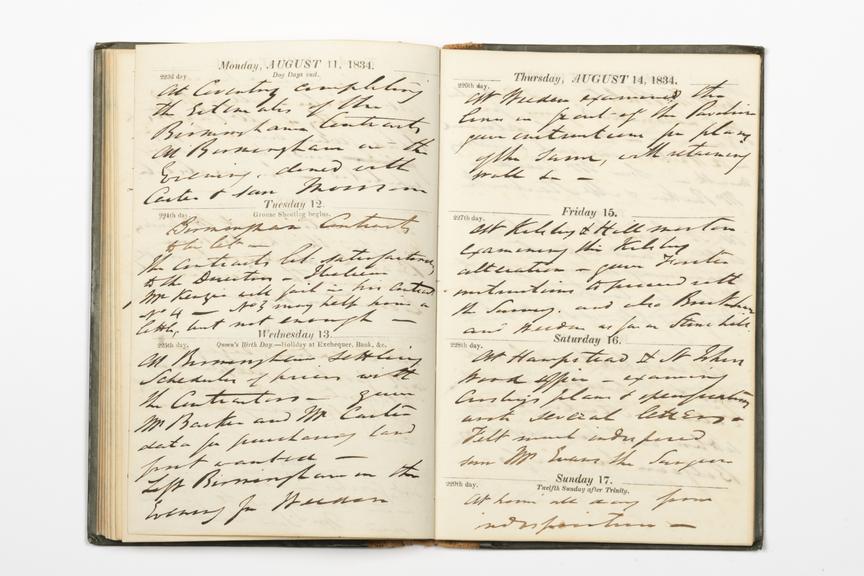 Monday, AUGUST 11, 1834.
223d day. Dog Days end.
At Coventry completing
the Estimates of the
Birmingham Contracts
At Birmingham in the
Evening, dined with
Carter & saw
Tuesday 12.
224th day. Grouse Shooting begins.
Birmingham Contracts
to be let —
The Contracts let satisfactorily
to the Directors — I believe
Mr Kenzie will fail in his Contract
No 4 — No 3 may help him a
little, but not enough —
Wednesday 13.
225th day. Queen's Birth Day.—Holiday at Exchequer, Bank, &c.
At Birmingham settling
Schedules of prices with
the Contractors — gave
Mr Barker and Mr Carter
data for purchasing land
first wanted —
Left Birmingham in the
Evening for Weedon
Thursday, AUGUST 14, 1834.
226th day.
At Weedon examined the
line in front of the Pavilion
gave instructions for plans
of the same, with retaining
walls &c —
Friday 15.
227th day.
At Kilsby & Hillmorton
examining the Kilsby
alteration — gave
instructions to proceed with
the Survey, and also
and Weedon as far as Stowe hill.
Saturday 16.
228th day.
At Hampstead & St Johns
Wood office — examining
plans & specifications
wrote several letters —
Felt much indisposed
saw Mr Evans the Surgeon
Sunday 17.
229th day. Twelfth Sunday after Trinity.
At home all day from
indisposition —